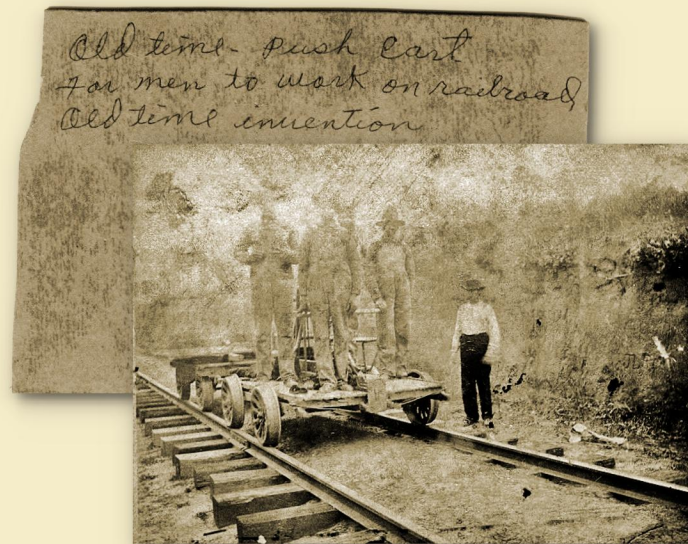 Old time - Push Cart
For men to work on railroad
Old time invention